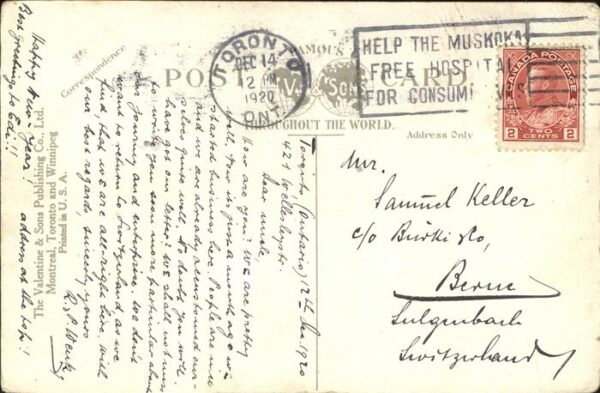 Correspondence
FAMOUS
POST CARD
V. & Sons
THROUGHOUT THE WORLD.
Address Only
TORONTO
DEC 14
2 PM
1920
ONT.
HELP THE MUSKOKA
FREE HOSPITAL
FOR CONSUMPTIVES
CANADA POSTAGE
2 2
TWO CENTS
Mr.
Samuel Keller
c/o Bürki & Co,
Berne
Sulgenbach
Switzerland
Toronto (Ontario) 12th Dec. 1920
421 Wellesley Str.
Dear uncle,
How are you? We are pretty
well. Now it is just a month ago we
started business here. People are nice
and we are already around our-
selves quite well. No doubt you will
have got our letter? We shall not miss
to write you soon more particular about
our journey and enterprise. We don't
want to return to Switzerland, as we
find, that we are all-right here. With
our best regards, sincerely yours
R. & P. Wenk
Happy New-Year! address at the top!
Best greetings to Edi!!
The Valentine & Sons Publishing Co., Ltd.
Montreal, Toronto and Winnipeg
Printed in U.S.A.